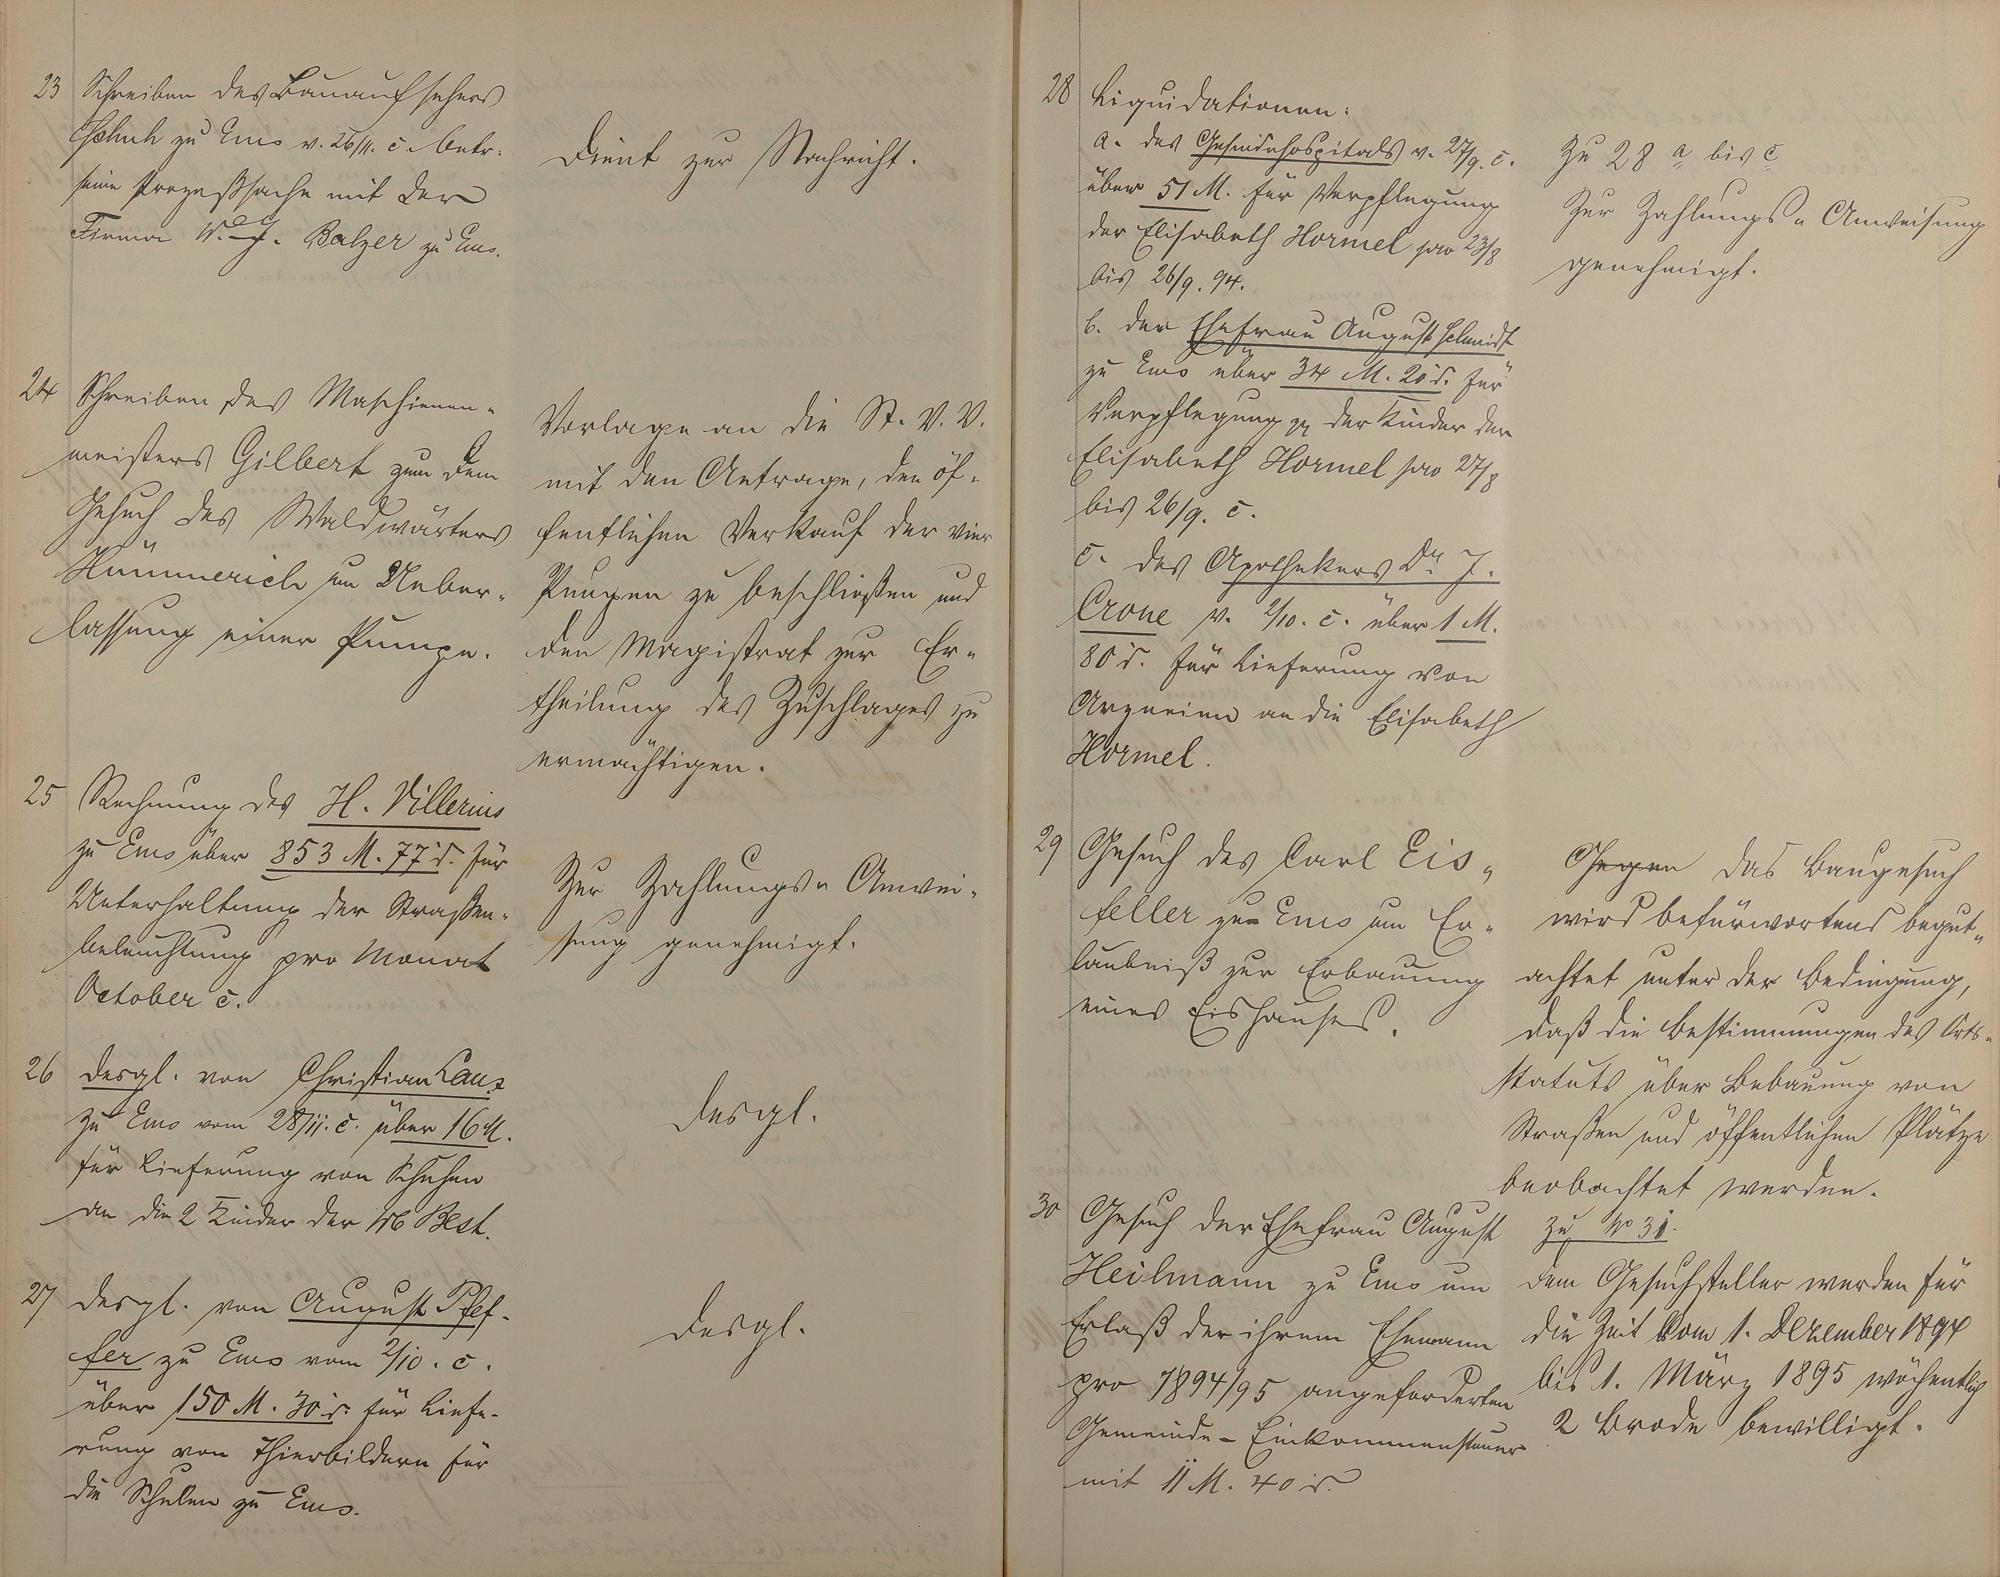 23 Schreiben des Bauaufsehers
Schuh zu Ems v. 26/11. c. betr.
seine Prozeßsache mit der
Firma W. J. Balzer zu Ems.
Dient zur Nachricht.
24 Schreiben des Maschienen-
meisters Gilbert zum dem
Gesuch des Waldwärters
Hümmerich um Ueber-
lassung einer Pumpe.
Vorlage an die St. V. V.
mit dem Antrage, den öf-
fentlichen Verkauf der vier
Pumpen zu beschließen und
den Magistrat zur Er-
theilung des Zuschlages zu
ermächtigen.
25 Rechnung des H. Villerius
zu Ems über 853 M. 77 d. für
Unterhaltung der Straßen-
beleuchtung pro Monat
October c.
Zur Zahlungs-Anwei-
sung genehmigt.
26 desgl. von Christian Lanz
zu Ems vom 28/11. c. über 16 M.
für Lieferung von Schuhen
an die 2 Kinder der Best.
desgl.
27 desgl. von August Pfef-
fer zu Ems vom 2/10. c.
über 150 M. 30 d. für Liefe-
rung von Thierbildern für
die Schulen zu Ems.
desgl.
28 Liquidationen:
a. des Gesindehospitals v. 27/9. c.
über 51 M. für Verpflegung
der Elisabeth Hormel pro 23/8
bis 26/9. 94.
b. der Ehefrau August Schmidt
zu Ems über 34 M. 20 d. für
Verpflegung der Kinder der
Elisabeth Hormel pro 27/8
bis 26/9. c.
c. des Apothekers Dr. J.
Crone v. 2/10. c. über 1 M.
80 d. für Lieferung von
Arzneien an die Elisabeth
Hormel.
Zu 28 a bis c
Zur Zahlungs-Anweisung
genehmigt.
29 Gesuch des Carl Eis-
feller zu Ems um Er-
laubniß zur Erbauung
eines Eishauses.
Gegen das Baugesuch
wird befürwortend begut-
achtet unter der Bedingung,
daß die Bestimmungen des Orts-
statuts über Bebauung von
Straßen und öffentlichen Plätze
beobachtet werden.
30 Gesuch der Ehefrau August
Heilmann zu Ems um
Erlaß der ihrem Ehemann
pro 1894/95 angeforderten
Gemeinde-Einkommensteuer
mit 11 M. 40 d.
Zu No 31.
Dem Gesuchsteller werden für
die Zeit vom 1. Dezember 1894
bis 1. März 1895 wöchentlich
2 Brode bewilligt.